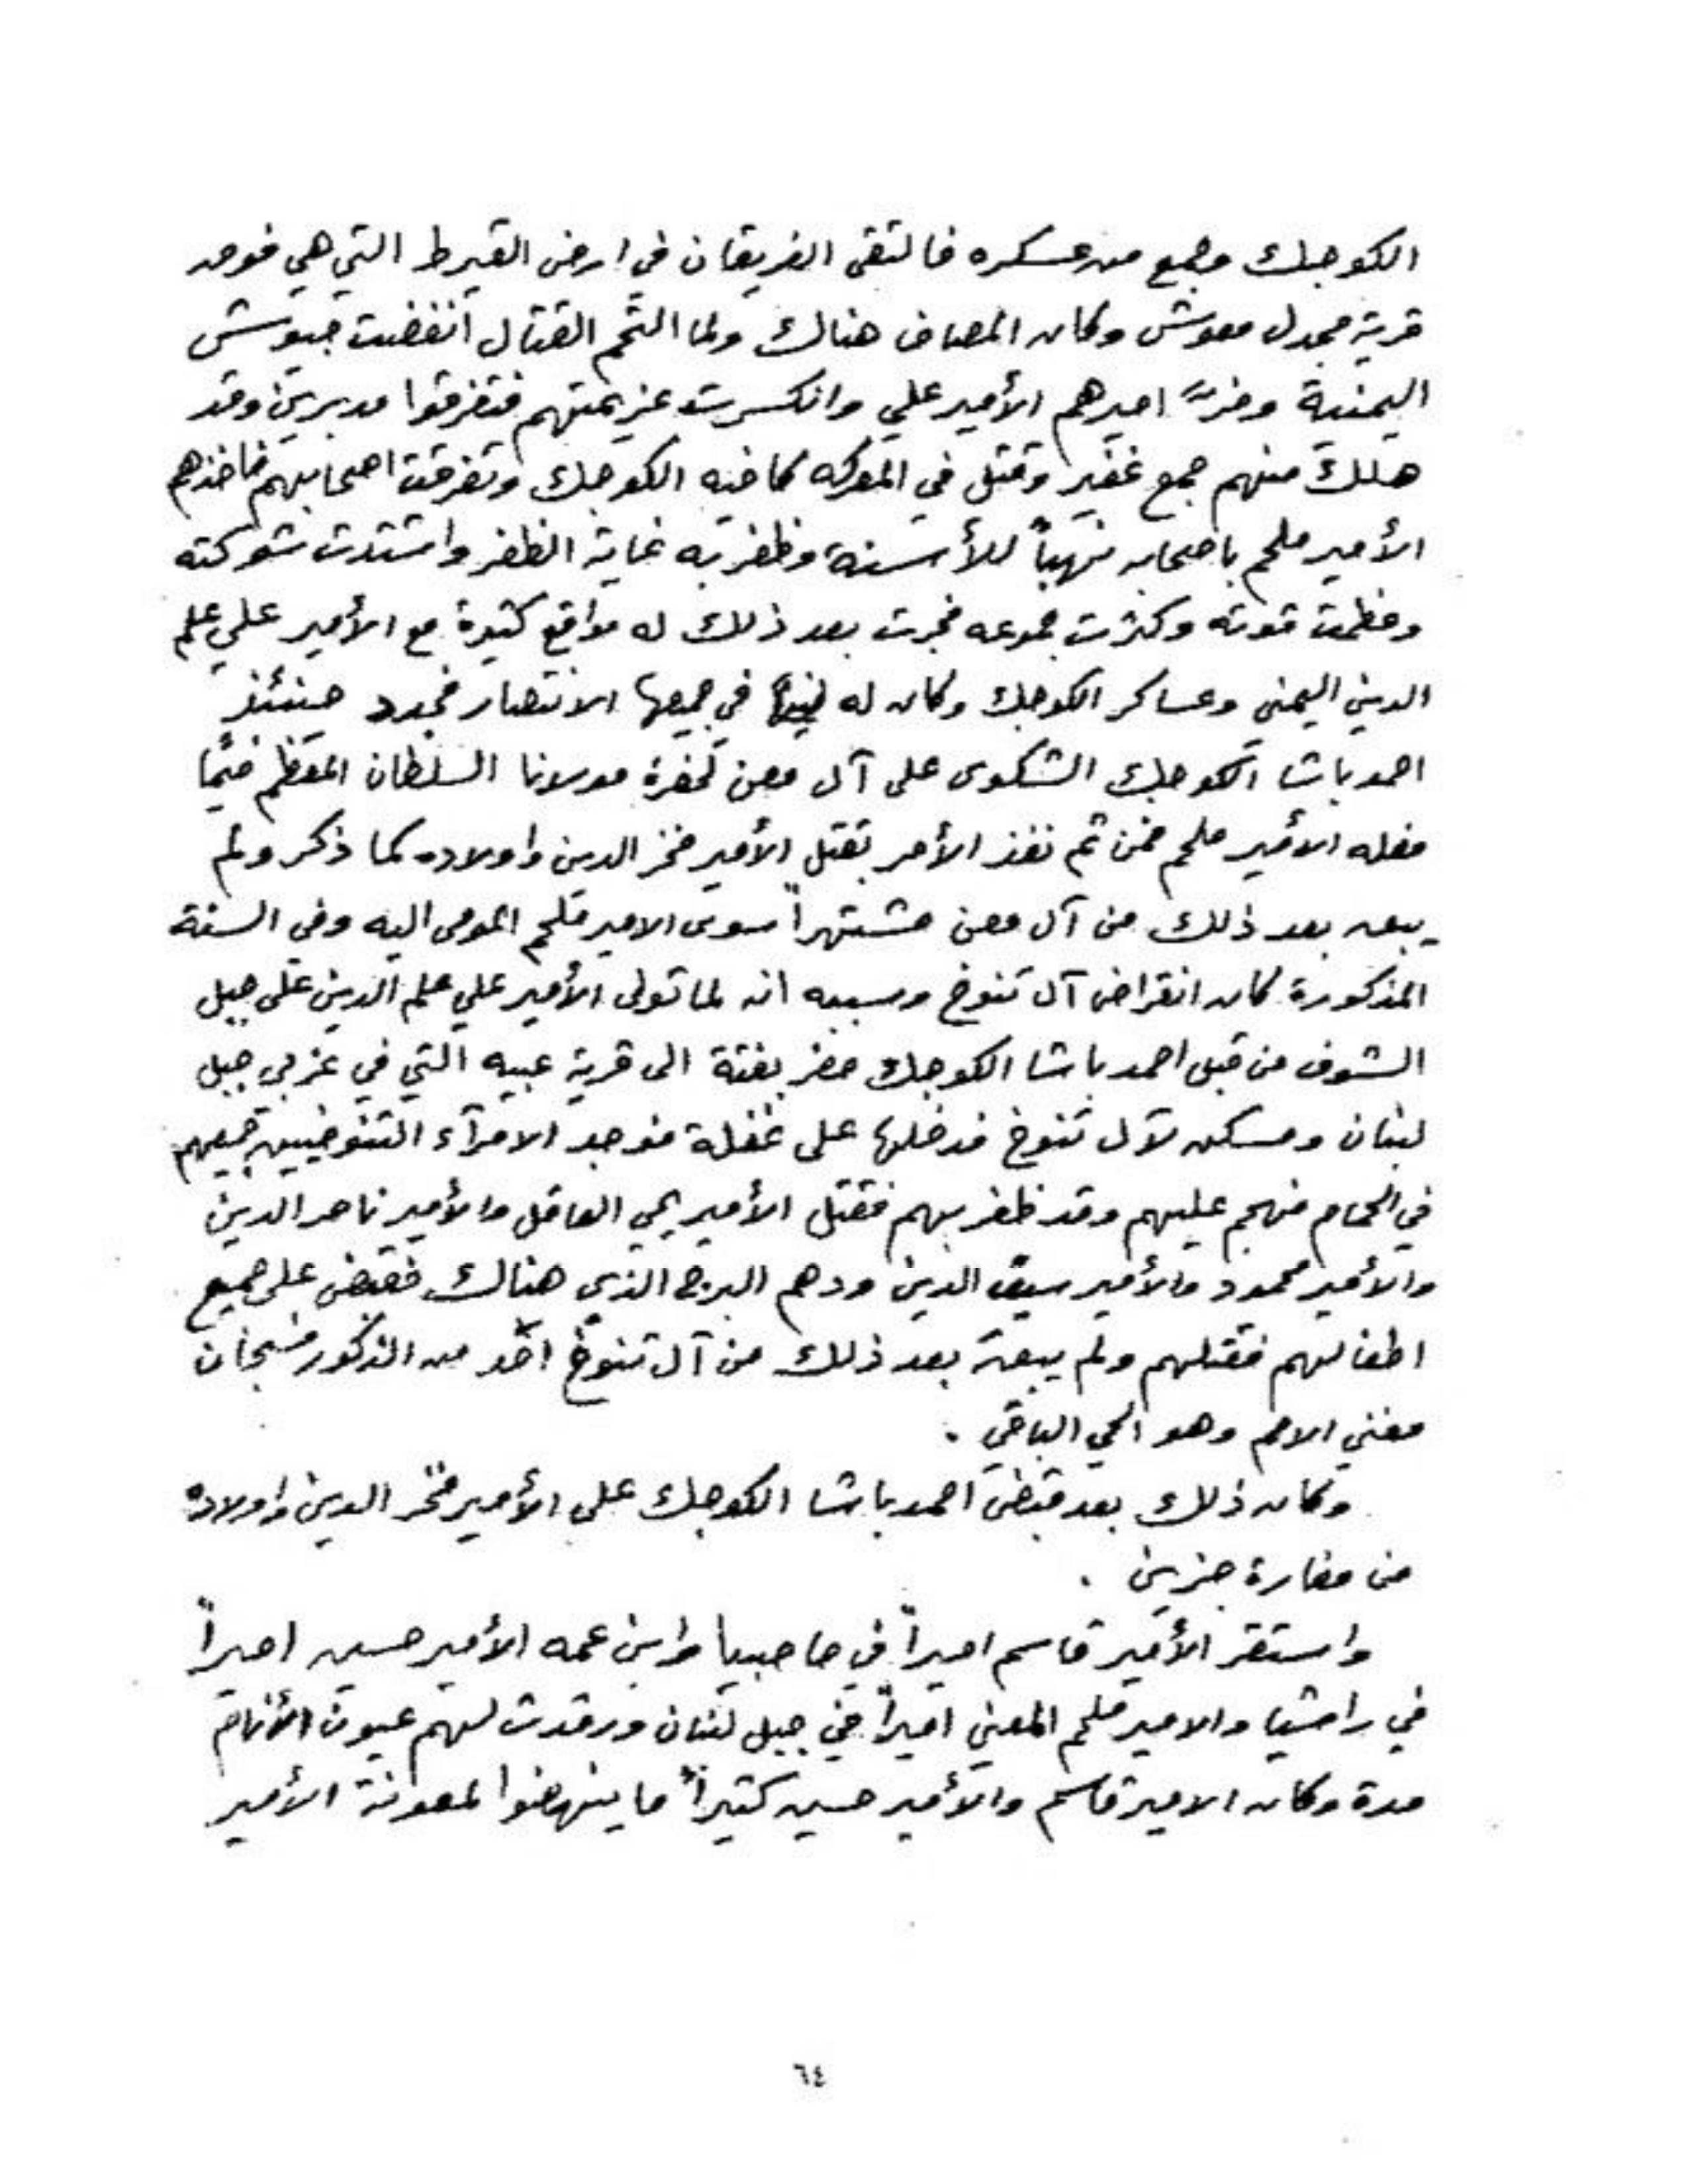 الكوجك وجمع من عسكره فالتقى الفريقان في ارض القيراط التي هي فوق
قرية مجدل معوش وكان المصاف هناك ولما التحم القتال انفضت جيوش
اليمنية وفرّ اميرهم الأمير علي وانكسرت عزيمتهم فتفرقوا مدبرين وقد
هلك منهم جمع غفير وقتل في المعركه كافيه الكوجك وتفرقت اصحابهم فاخذهم
الأمير ملحم باصحابه نهباً للأسنة وظفر به غاية الظفر واشتدت شوكته
وعظمت قوته وكثرت جموعه فجرت بعد ذلك له مواقع كثيرة مع الأمير علي علم
الدين اليمني وعساكر الكوجك وكان له في جميعها الانتصار فجدد حينئذٍ
احمد باشا الكوجك الشكوى على آل معن لحضرة مولانا السلطان المعظم فيما
فعله الأمير ملحم فمن ثم نفذ الأمر بقتل الأمير فخر الدين واولاده كما ذكر ولم
يبق بعد ذلك من آل معن مشتهراً سوى الامير ملحم المومى اليه وفي السنة
المذكورة كان انقراض آل تنوخ وسببه انه لما تولى الأمير علي علم الدين على جبل
الشوف من قبل احمد باشا الكوجك حضر بغتة الى قرية عبيه التي في غربي جبل
لبنان ومسكن لآل تنوخ فدخلها على غفلة فوجد الامرآء التنوخيين جميعهم
في الحمام فهجم عليهم وقد ظفر بهم فقتل الأمير يحي العاقل والأمير ناصر الدين
والأمير محمود والأمير سيف الدين ودهم البرج الذي هناك فقبض على جميع
اطفالهم فقتلهم ولم يبق بعد ذلك من آل تنوخ احد من الذكور فسبحان
مفني الامم وهو الحي الباقي .
وكان ذلك بعد قبض احمد باشا الكوجك على الأمير فخر الدين واولاده
من مغارة جزين .
واستقر الأمير قاسم اميراً في حاصبيا وابن عمه الأمير حسين اميراً
في راشيا والامير ملحم المعني اميراً في جبل لبنان ورقدت لهم عيون الأنام
مدة وكان الامير قاسم والأمير حسين كثيراً ما ينهضوا لمعونة الأمير
٦٤